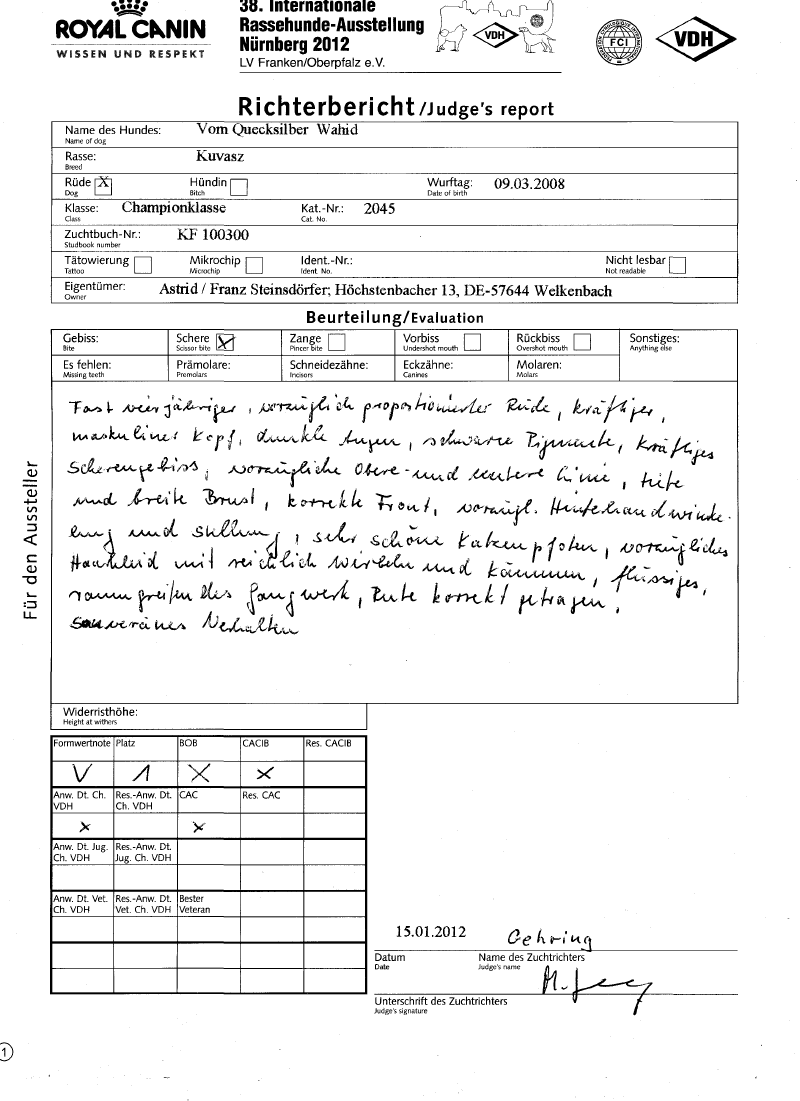 ROYAL CANIN
WISSEN UND RESPEKT
38. Internationale
Rassehunde-Ausstellung
Nürnberg 2012
LV Franken/Oberpfalz e.V.
VDH
FCI
VDH
Richterbericht /Judge's report
Name des Hundes: Vom Quecksilber Wahid
Name of dog
Rasse: Kuvasz
Breed
Rüde X Hündin Wurftag: 09.03.2008
Dog Bitch Date of birth
Klasse: Championklasse Kat.-Nr.: 2045
Class Cat. No.
Zuchtbuch-Nr.: KF 100300
Studbook number
Tätowierung Mikrochip Ident.-Nr.: Nicht lesbar
Tattoo Microchip Ident. No. Not readable
Eigentümer: Astrid / Franz Steinsdörfer; Höchstenbacher 13, DE-57644 Welkenbach
Owner
Beurteilung/Evaluation
Gebiss: Schere X Zange Vorbiss Rückbiss Sonstiges:
Bite Scissor bite Pincer bite Undershot mouth Overshot mouth Anything else
Es fehlen: Prämolare: Schneidezähne: Eckzähne: Molaren:
Missing teeth Premolars Incisors Canines Molars
Fast vierjähriger, vorzüglich proportionierter Rüde, kräftiger,
maskuliner Kopf, dunkle Augen, schwarze Pigmente, kräftiges
Scherengebiss, vorzügliche Obere- und untere Linie, tiefe
und breite Brust, korrekte Front, vorzügl. Hinterhandwinke-
lung und stellung, sehr schöne Katzenpfoten, vorzügliches
Haarkleid mit reichlich Wirbeln und Kämmen, flüssiges,
raumgreifendes Gangwerk, Rute korrekt getragen,
souveränes Verhalten
Für den Aussteller
Widerristhöhe:
Height at withers
Formwertnote Platz BOB CACIB Res. CACIB
V 1 X X
Anw. Dt. Ch. VDH Res.-Anw. Dt. Ch. VDH CAC Res. CAC
X X
Anw. Dt. Jug. Ch. VDH Res.-Anw. Dt. Jug. Ch. VDH
Anw. Dt. Vet. Ch. VDH Res.-Anw. Dt. Vet. Ch. VDH Bester Veteran
15.01.2012 Gehring
Datum Name des Zuchtrichters
Date Judge's name
Unterschrift des Zuchtrichters
Judge's signature
1